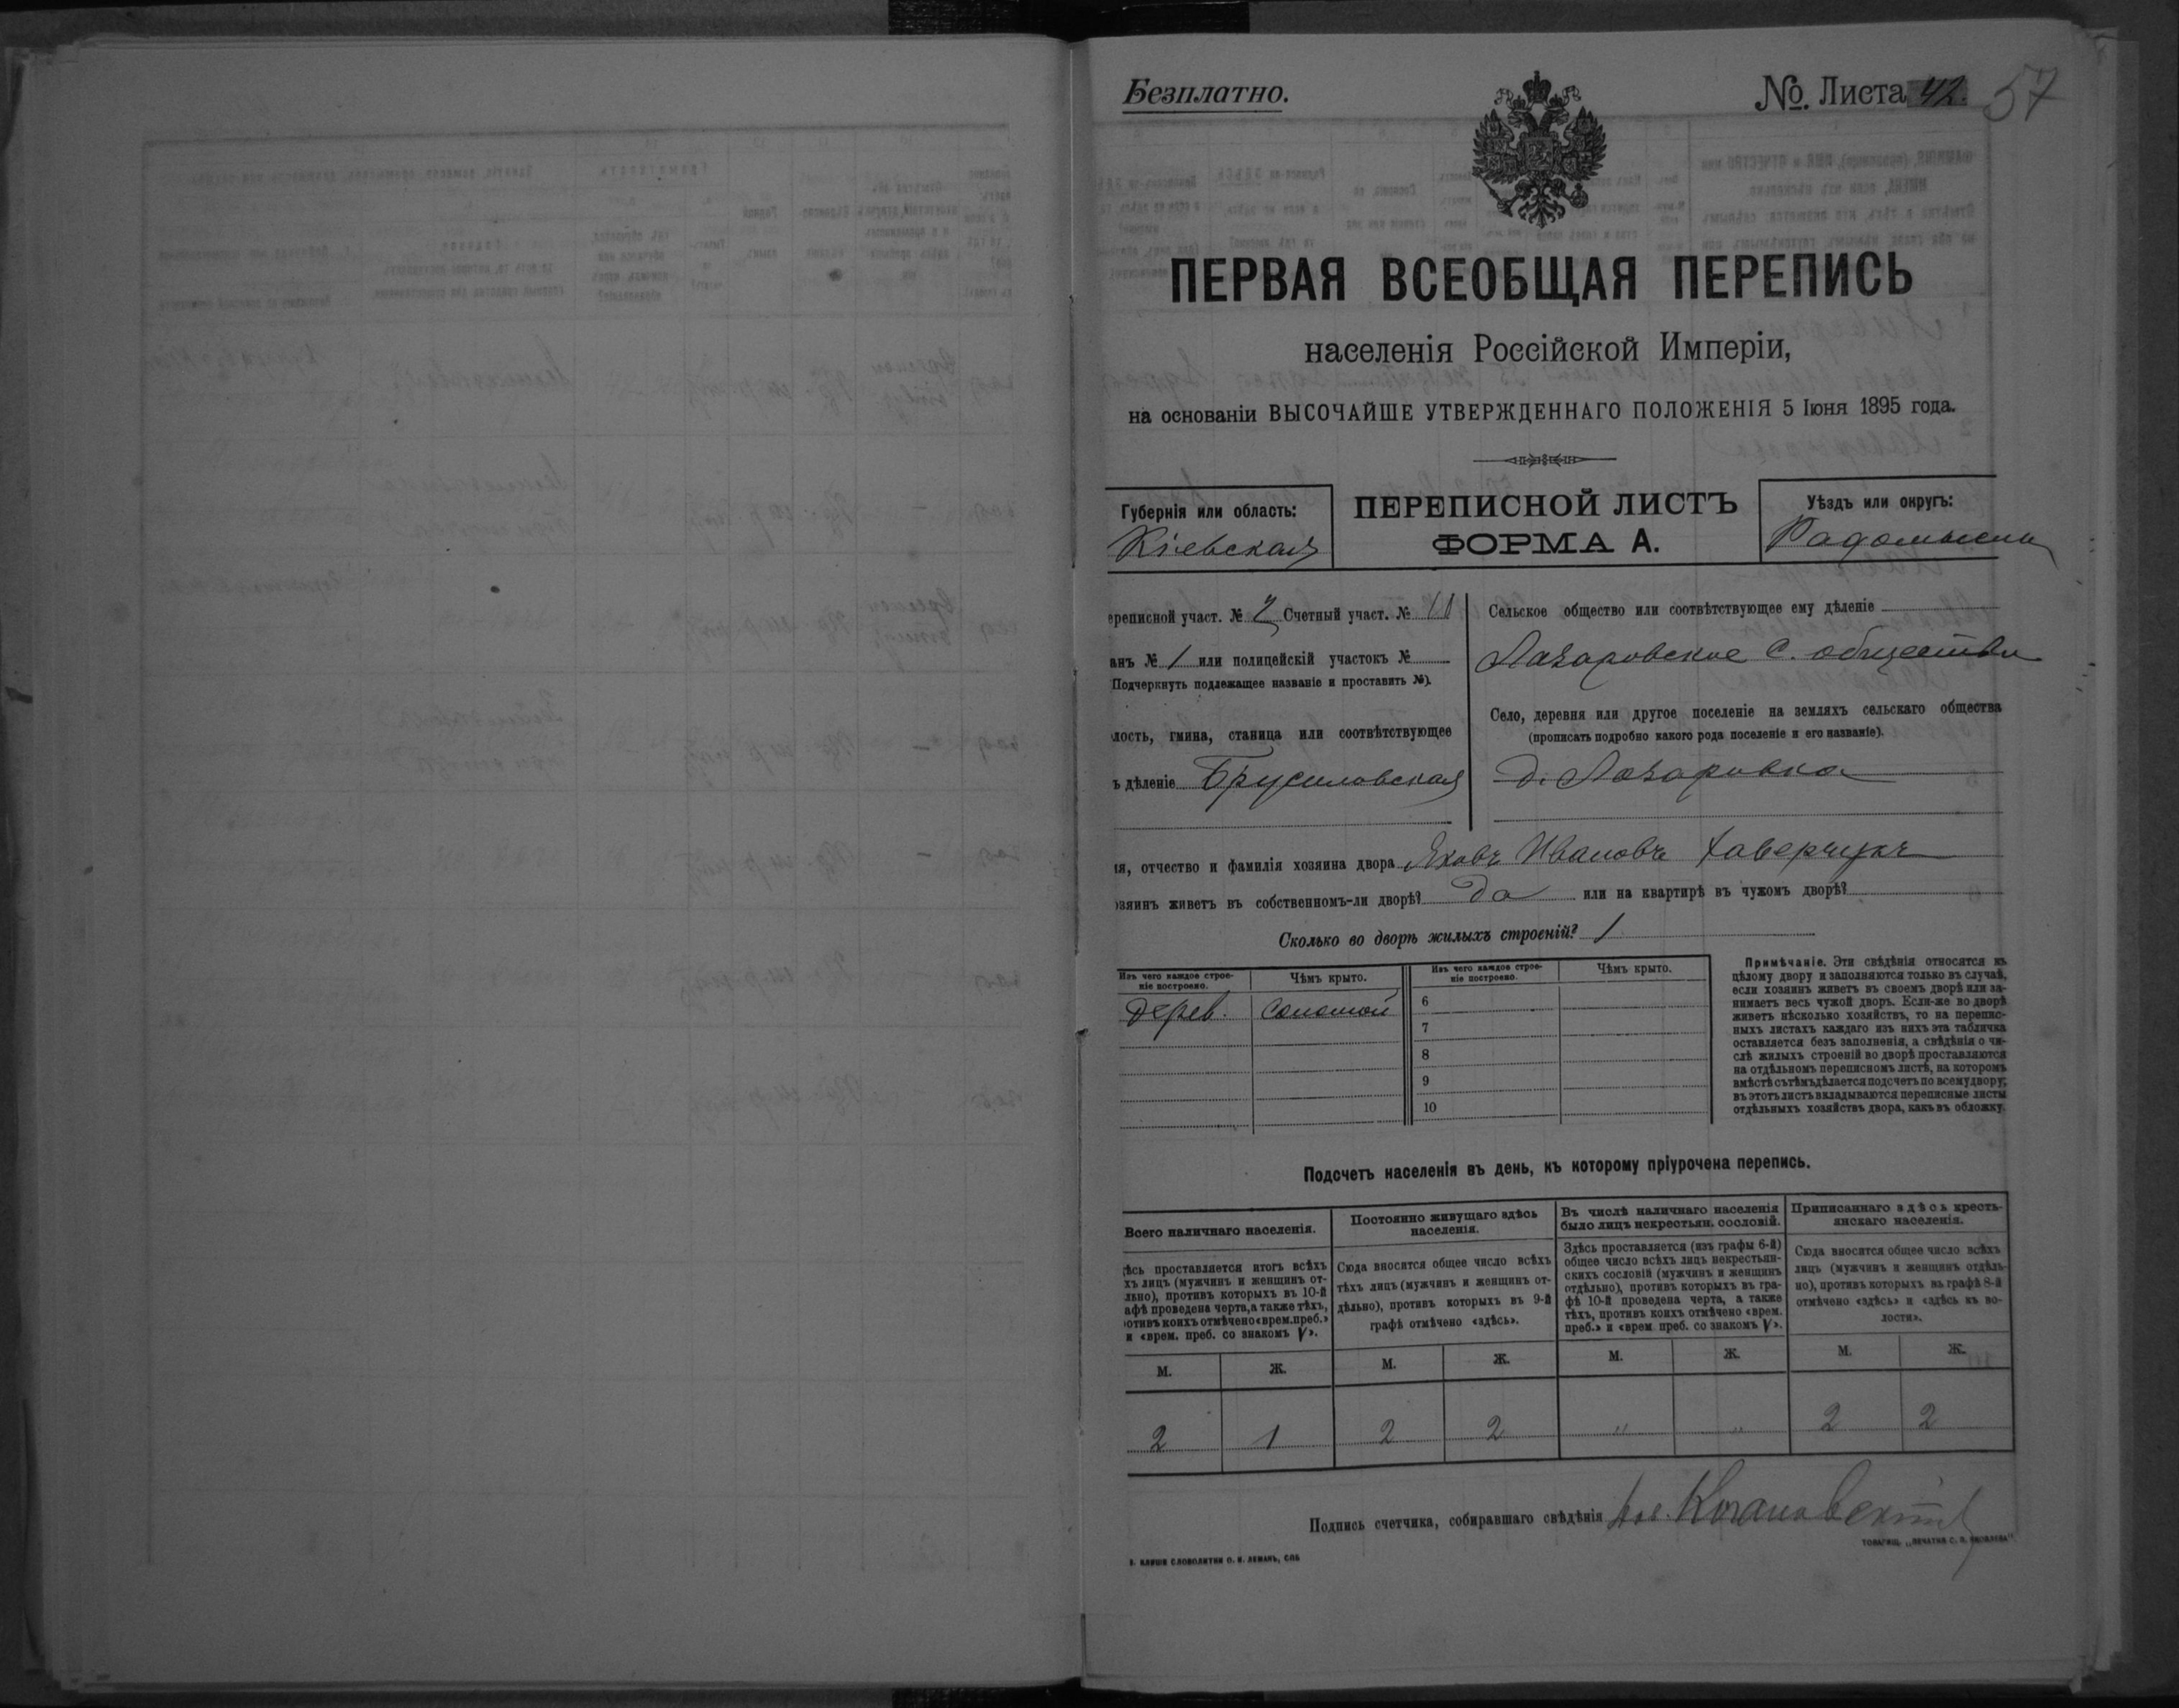 Безплатно.
№. Листа 42. 57
ПЕРВАЯ ВСЕОБЩАЯ ПЕРЕПИСЬ
населенія Россійской Имперіи,
на основаніи ВЫСОЧАЙШЕ УТВЕРЖДЕННАГО ПОЛОЖЕНІЯ 5 Іюня 1895 года.
Губернія или область:
Кіевская
ПЕРЕПИСНОЙ ЛИСТЪ
ФОРМА А.
Уѣздъ или округъ:
ереписной участ. № 2 Счетный участ. №
анъ № 1 или полицейскій участокъ №
Подчеркнуть подлежащее названіе и проставить №).
лость, гмина, станица или соотвѣтствующее
ъ дѣленіе Брусиловская
Сельское общество или соотвѣтствующее ему дѣленіе
Лазаровское с. общество
Село, деревня или другое поселеніе на земляхъ сельскаго общества
(прописать подробно какого рода поселеніе и его названіе).
д. Лазаровка
ія, отчество и фамилія хозяина двора Яковъ Ивановъ Хаверчукъ
озяинъ живетъ въ собственномъ-ли дворѣ? да или на квартирѣ въ чужомъ дворѣ?
Сколько во дворѣ жилыхъ строеній? 1
Изъ чего каждое строе-
ніе построено.
Чѣмъ крыто.
Изъ чего каждое строе-
ніе построено.
Чѣмъ крыто.
Дерев. Соломой
6
7
8
9
10
Примѣчаніе. Эти свѣдѣнія относятся къ
цѣлому двору и заполняются только въ случаѣ,
если хозяинъ живетъ въ своемъ дворѣ или за-
нимаетъ весь чужой дворъ. Если-же во дворѣ
живетъ нѣсколько хозяйствъ, то на перепис-
ныхъ листахъ каждаго изъ нихъ эта табличка
оставляется безъ заполненія, а свѣдѣнія о чи-
слѣ жилыхъ строеній во дворѣ проставляются
на отдѣльномъ переписномъ листѣ, на которомъ
вмѣстѣ съ тѣмъ дѣлается подсчетъ по всему двору;
въ этотъ листъ вкладываются переписные листы
отдѣльныхъ хозяйствъ двора, какъ въ обложку.
Подсчетъ населенія въ день, къ которому пріурочена перепись.
Всего наличнаго населенія.
ѣсь проставляется итогъ всѣхъ
хъ лицъ (мужчинъ и женщинъ от-
льно), противъ которыхъ въ 10-й
афѣ проведена черта, а также тѣхъ,
отивъ коихъ отмѣчено «врем. преб.»
и «врем. преб. со знакомъ V».
Постоянно живущаго здѣсь
населенія.
Сюда вносится общее число всѣхъ
тѣхъ лицъ (мужчинъ и женщинъ от-
дѣльно), противъ которыхъ въ 9-й
графѣ отмѣчено «здѣсь».
Въ числѣ наличнаго населенія
было лицъ некрестьян. сословій.
Здѣсь проставляется (изъ графы 6-й)
общее число всѣхъ лицъ некрестьян-
скихъ сословій (мужчинъ и женщинъ
отдѣльно), противъ которыхъ въ гра-
фѣ 10-й проведена черта, а также
тѣхъ, противъ коихъ отмѣчено «врем.
преб.» и «врем преб. со знакомъ V».
Приписаннаго здѣсь кресть-
янскаго населенія.
Сюда вносится общее число всѣхъ
лицъ (мужчинъ и женщинъ отдѣль-
но), противъ которыхъ въ графѣ 8-й
отмѣчено «здѣсь» и «здѣсь къ во-
лости».
М. Ж. М. Ж. М. Ж. М. Ж.
2 1 2 2 " " 2 2
Подпись счетчика, собиравшаго свѣдѣнія
КЛИШЕ СЛОВОЛИТНИ О. И. ЛЕМАНЪ, СПБ
ТОВАРИЩ. „ПЕЧАТНЯ С. П. ЯКОВЛЕВА"